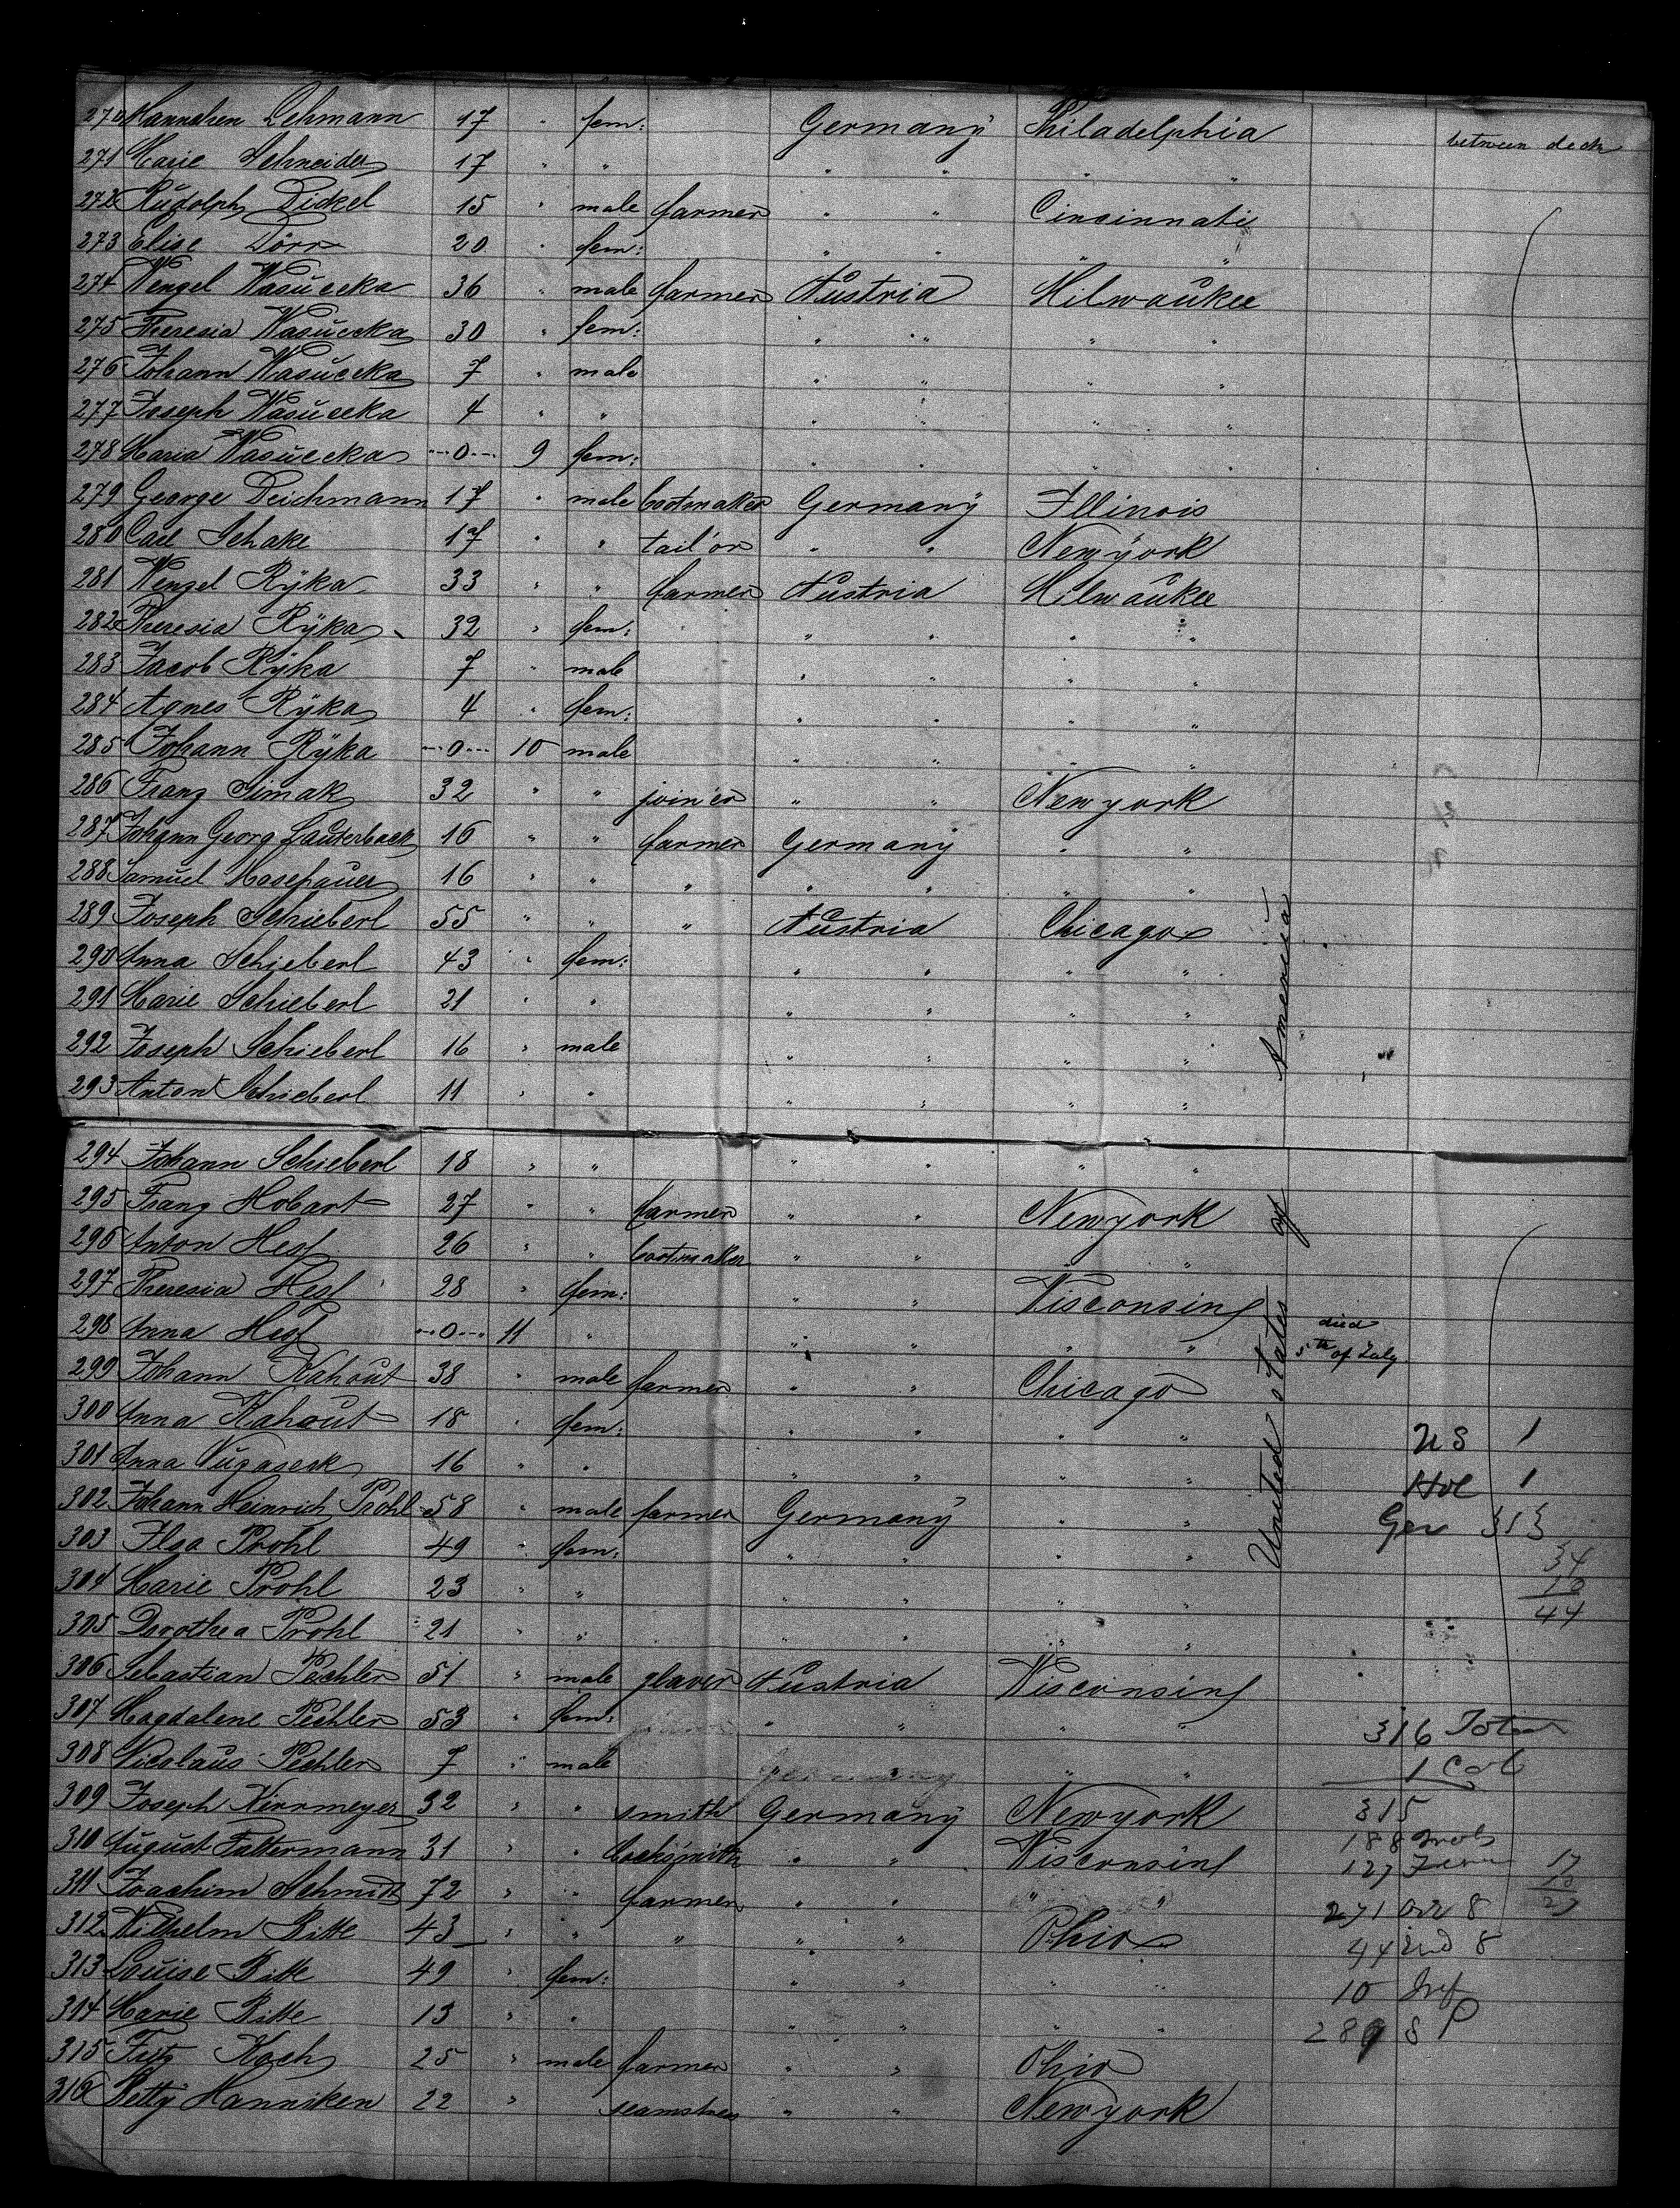 270 Hannchen Lehmann 17 " fem: Germany Philadelphia between deck
271 Marie Schneider 17 " " " " " "
272 Rudolph Dickel 15 " male farmer " " Cincinnati
273 Elise Dörr 20 " fem: " " " "
274 Wenzel Wasŭecka 36 " male farmer Aŭstria Milwaŭkee
275 Theresia Wasŭecka 30 " fem: " " " "
276 Johann Wasŭecka 7 " male " " " "
277 Joseph Wasŭecka 4 " " " " " "
278 Maria Wasŭecka --0-- 9 fem: " " " "
279 George Deichmann 17 " male bootmaker Germany Illinois
280 Carl Schake 17 " " tailor " " Newyork
281 Wenzel Rÿka 33 " " farmer Aŭstria Milwaŭkee
282 Theresia Rÿka 32 " fem: " " " "
283 Jacob Rÿka 7 " male " " " "
284 Agnes Rÿka 4 " fem: " " " "
285 Johann Rÿka --0-- 10 male " " " "
286 Franz Simak 32 " " joiner " " Newyork
287 Johann Georg Lauterbach 16 " " farmer Germany " "
288 Samuel 16 " " " " " " "
289 Joseph Schieberl 55 " " " Aŭstria Chicago
290 Anna Schieberl 43 " fem: " " " "
291 Marie Schieberl 21 " " " " " "
292 Joseph Schieberl 16 " male " " " "
293 Anton Schieberl 11 " " " " " "
294 Johann Schieberl 18 " " " " " "
295 Franz Hobart 27 " " farmer " " Newyork
296 Anton Hess 26 " " bootmaker " " " "
297 Theresia Hess 28 " fem: " " Wisconsin
298 Anna Hess --0-- 11 " " " " " died 5th of July
299 Johann Kahoŭt 38 " male farmer " " Chicago
300 Anna Kahoŭt 18 " fem: " " " "
301 Anna 16 " " " " " "
302 Johann Heinrich Prohl 58 " male farmer Germany " "
303 Ilsa Prohl 49 " fem: " " " "
304 Marie Prohl 23 " " " " " "
305 Dorothea Prohl 21 " " " " " "
306 Sebastian Pechler 51 " male Aŭstria Wisconsin
307 Magdalene Pechler 53 " fem: " " " "
308 Nicolaus Pechler 7 " male " "
309 Joseph Kirrmeyer 32 " " smith Germany Newyork
310 August Fattermann 31 " " locksmith " " Wisconsin
311 Joachim Schmidt 72 " " farmer " " " "
312 Wilhelm Bitte 43 " " " " " Ohio
313 Louise Bitte 49 " fem: " " " "
314 Marie Bitte 13 " " " " " "
315 Fritz Koch 25 " male farmer " " Ohio
316 Betty Hanniken 22 " seamstress " " Newyork
United States of America
US 1
Hol 1
Ger 313
34
10
44
316 Total
1
315
188
127
17
10
27
271
44
10 Inf